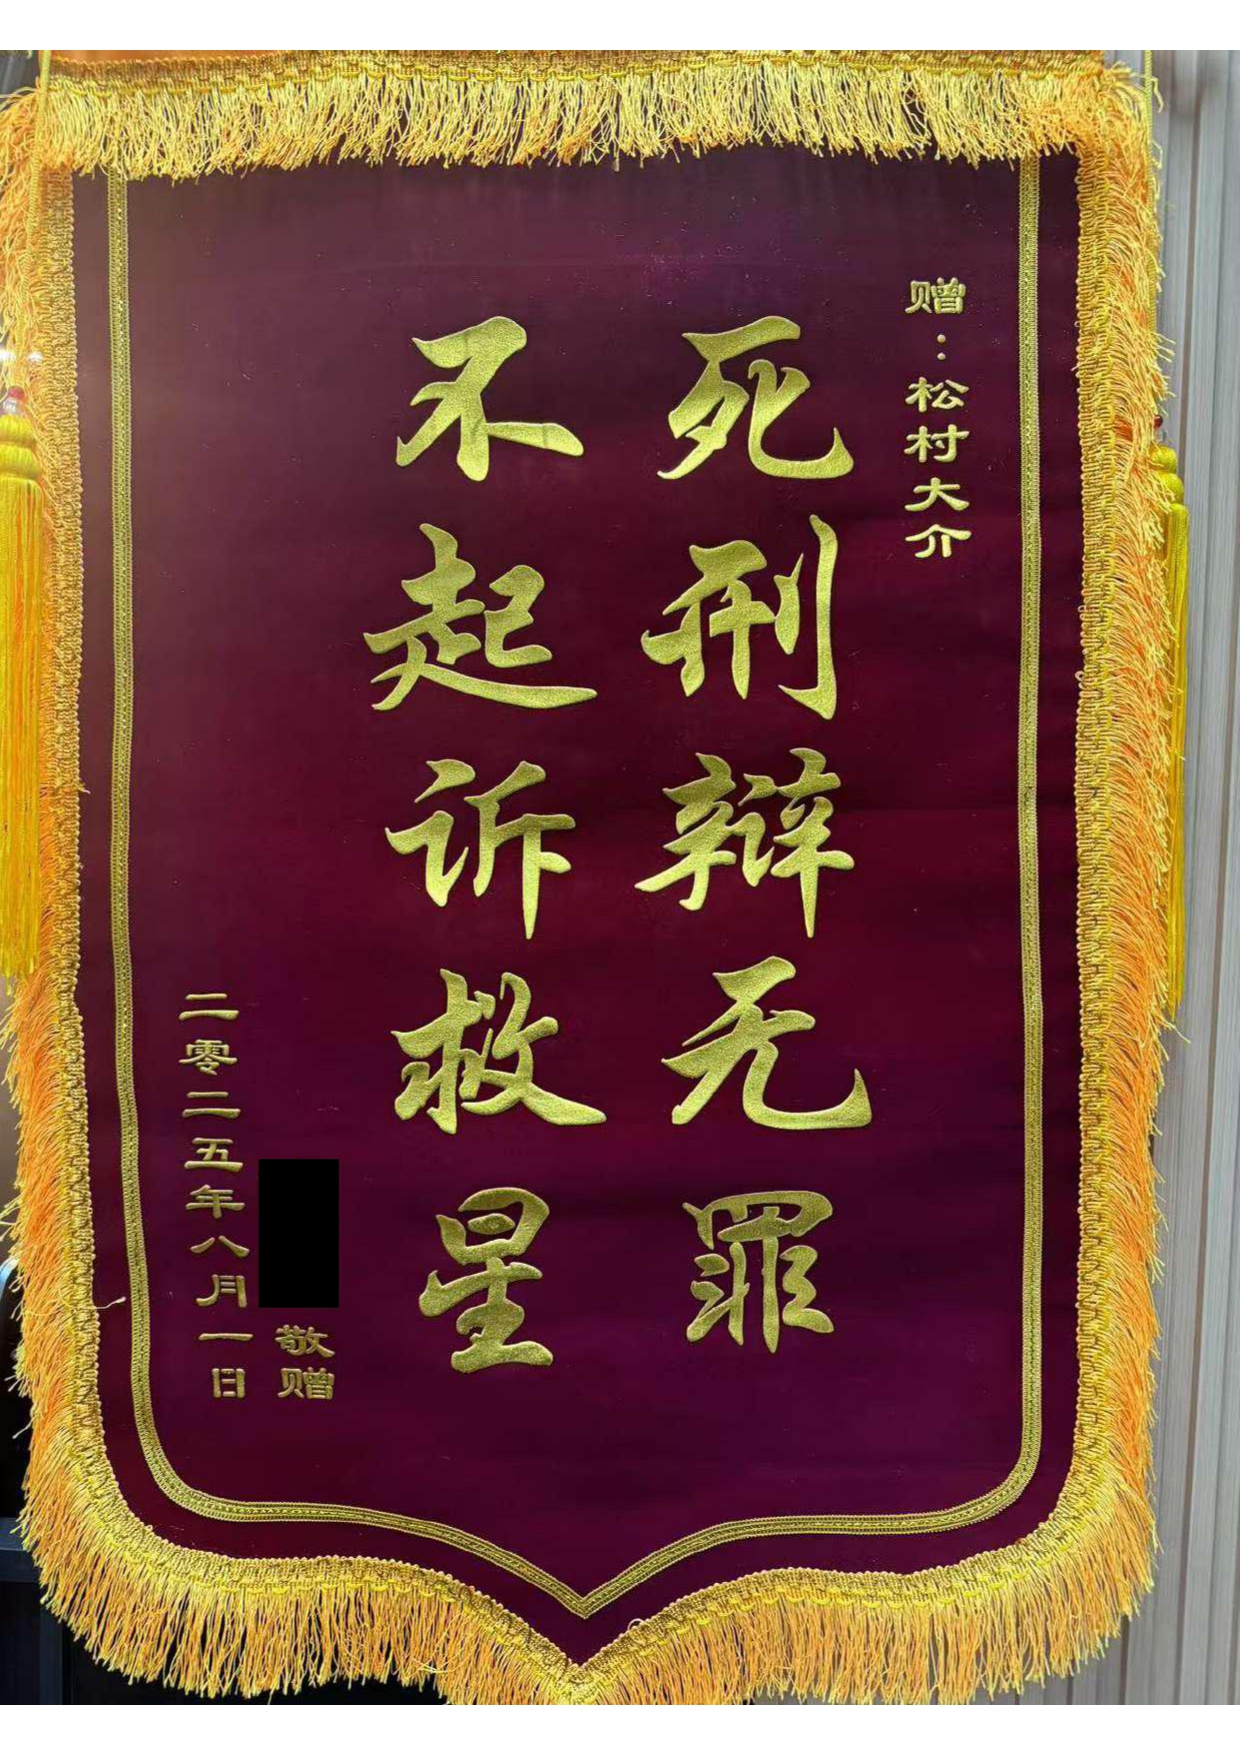 赠：松村大介
死刑辩无罪
不起诉救星
敬赠
二零二五年八月一日